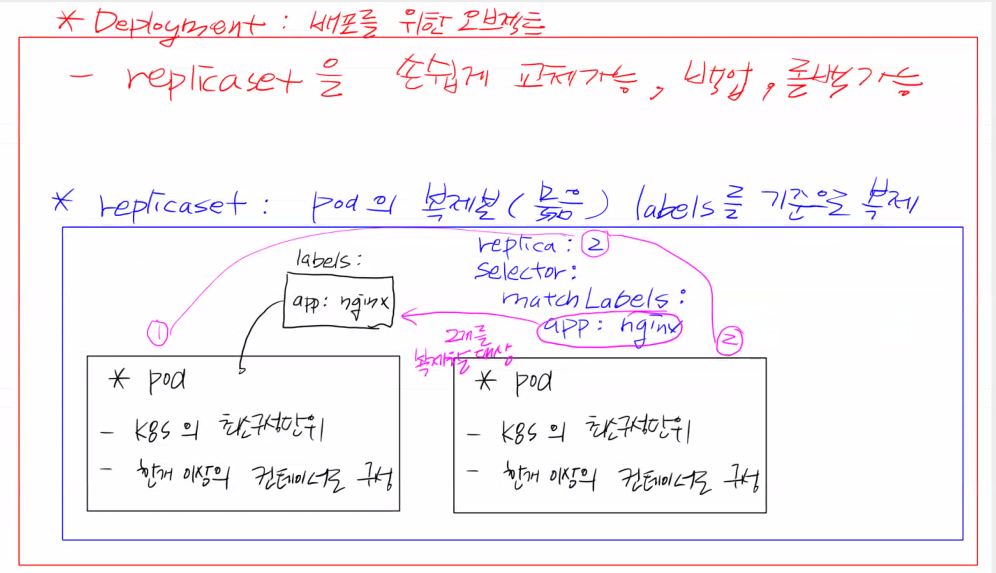 * Deployment : 배포를 위한 오브젝트
- replicaset을 손쉽게 교체가능, 백업, 롤백가능
* replicaset : pod의 복제본(묶음) labels를 기준으로 복제
labels:
app: nginx
replica: 2
selector:
matchLabels:
app: nginx
2개를
복제할 대상
1
2
* pod
- K8S의 최소구성단위
- 한개 이상의 컨테이너로 구성
* pod
- K8S의 최소구성단위
- 한개 이상의 컨테이너로 구성